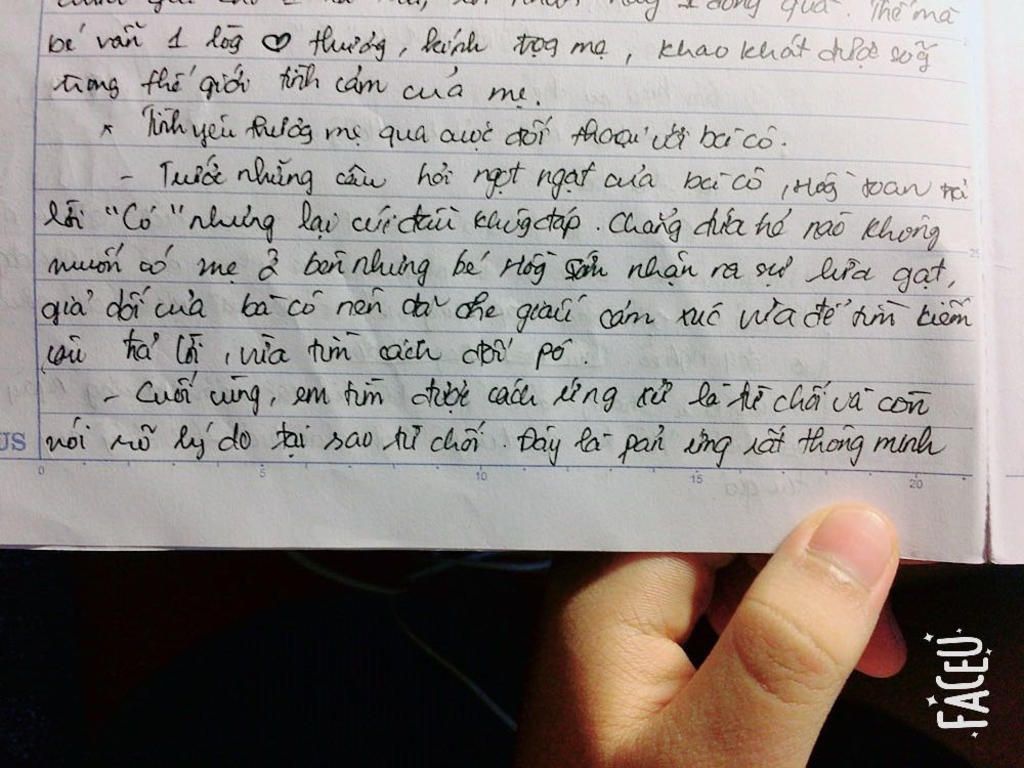 1 đồng quà. Thế mà
bé vẫn 1 lòg ♡ thươg, kính trọg mẹ, khao khát được sốg
trong thế giới tình cảm của mẹ.
* Tình yêu thươg mẹ qua cuộc đối thoại với bà cô.
- Trước những câu hỏi ngọt ngạt của bà cô, Hồg toan trả
lời "Có" nhưng lại cúi đầu khôg đáp. Chẳng đứa trẻ nào không
muốn có mẹ ở bên nhưng bé Hồg sớm nhận ra sự lừa gạt,
giả dối của bà cô nên đã che giấu cảm xúc vừa để tìm kiếm
câu trả lời, vừa tìm cách đối pó.
- Cuối cùng, em tìm được cách ứng xử là từ chối và còn
nói rõ lý do tại sao từ chối. Đây là pản ứng rất thông minh
US
0 5 10 15 20
25
FACEU